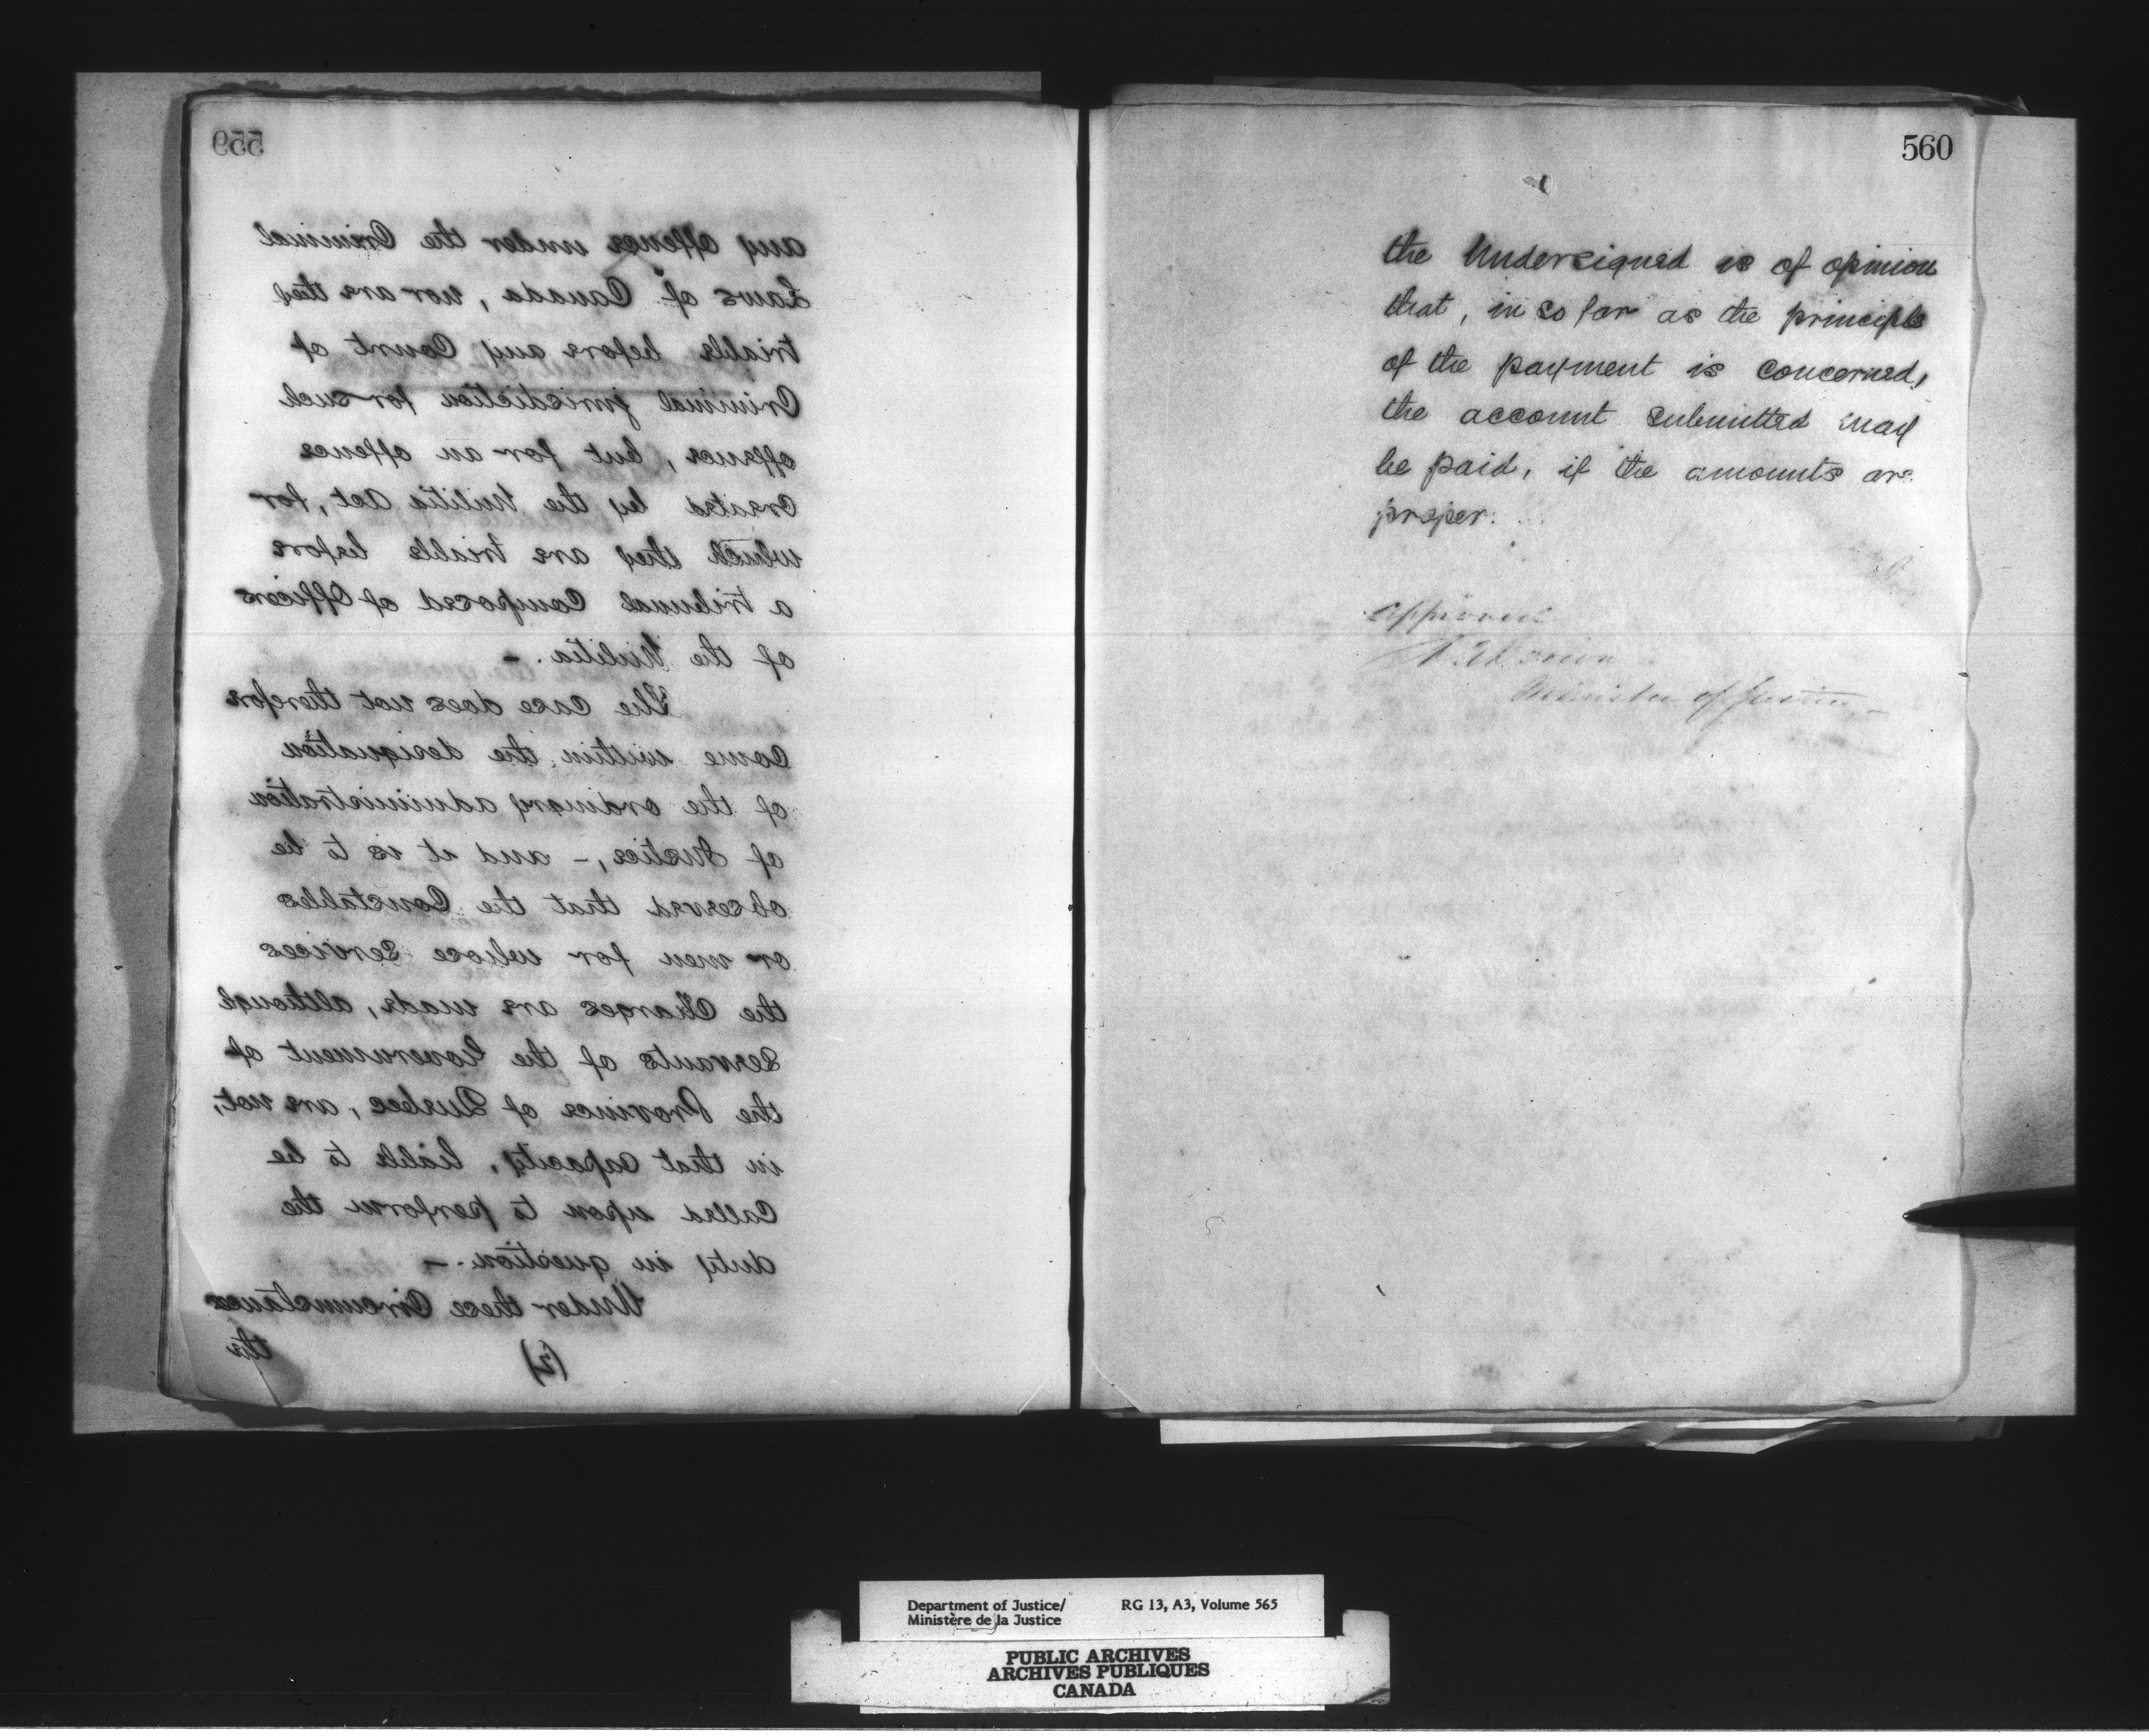 559
any offence under the Criminal
Laws of Canada, nor are they
triable before any Court of
Criminal jurisdiction for such
offence, but for an offence
created by the Militia Act, for
which they are triable before
a tribunal Composed of Officers
of the Militia. –
The case does not therefore
come within the designation
of the ordinary administration
of Justice, – and it is to be
observed that the Constables
or men for whose services
the Charges are made, although
servants of the Government of
the Province of Quebec, are not,
in that capacity, liable to be
called upon to perform the
duty in question. –
Under these Circumstances
(2)
the
560
the Undersigned is of opinion
that, in so far as the principle
of the payment is concerned,
the account submitted may
be paid, if the amounts are
proper.
Approved
Minister of Justice –
Department of Justice/
Ministère de la Justice
RG 13, A3, Volume 565
PUBLIC ARCHIVES
ARCHIVES PUBLIQUES
CANADA